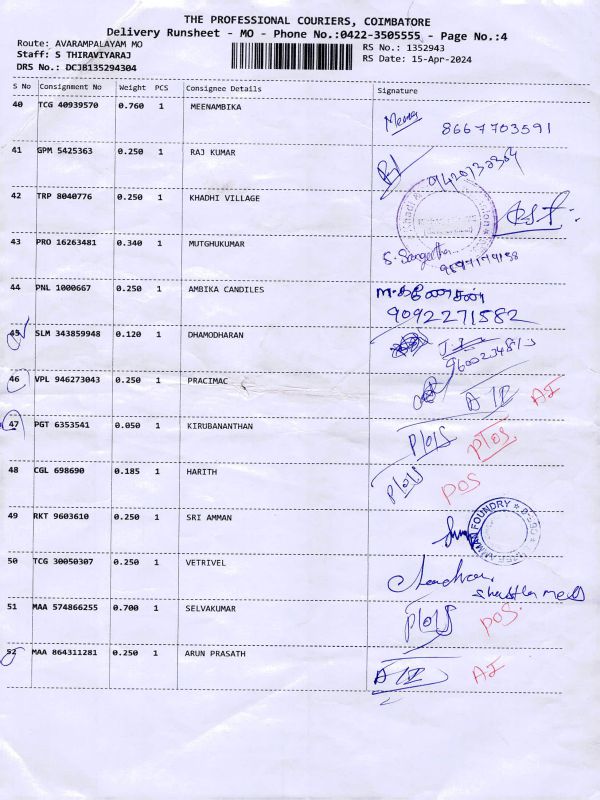 THE PROFESSIONAL COURIERS, COIMBATORE
Delivery Runsheet - MO - Phone No.:0422-3505555 - Page No.:4
Route: AVARAMPALAYAM MO
RS No.: 1352943
Staff: S THIRAVIYARAJ
RS Date: 15-Apr-2024
DRS No.: DCJB135294304
S No Consignment No Weight PCS Consignee Details Signature
40 TCG 40939570 0.760 1 MEENAMBIKA Meena 8667703591
41 GPM 5425363 0.250 1 RAJ KUMAR
42 TRP 8040776 0.250 1 KHADHI VILLAGE
43 PRO 16263481 0.340 1 MUTGHUKUMAR S. Sangeetha
44 PNL 1000667 0.250 1 AMBIKA CANDILES
9092271582
45 SLM 343859948 0.120 1 DHAMODHARAN
46 VPL 946273043 0.250 1 PRACIMAC AI
47 PGT 6353541 0.050 1 KIRUBANANTHAN
48 CGL 698690 0.185 1 HARITH POS
49 RKT 9603610 0.250 1 SRI AMMAN FOUNDRY
50 TCG 30050307 0.250 1 VETRIVEL
51 MAA 574866255 0.700 1 SELVAKUMAR POS.
52 MAA 864311281 0.250 1 ARUN PRASATH AI